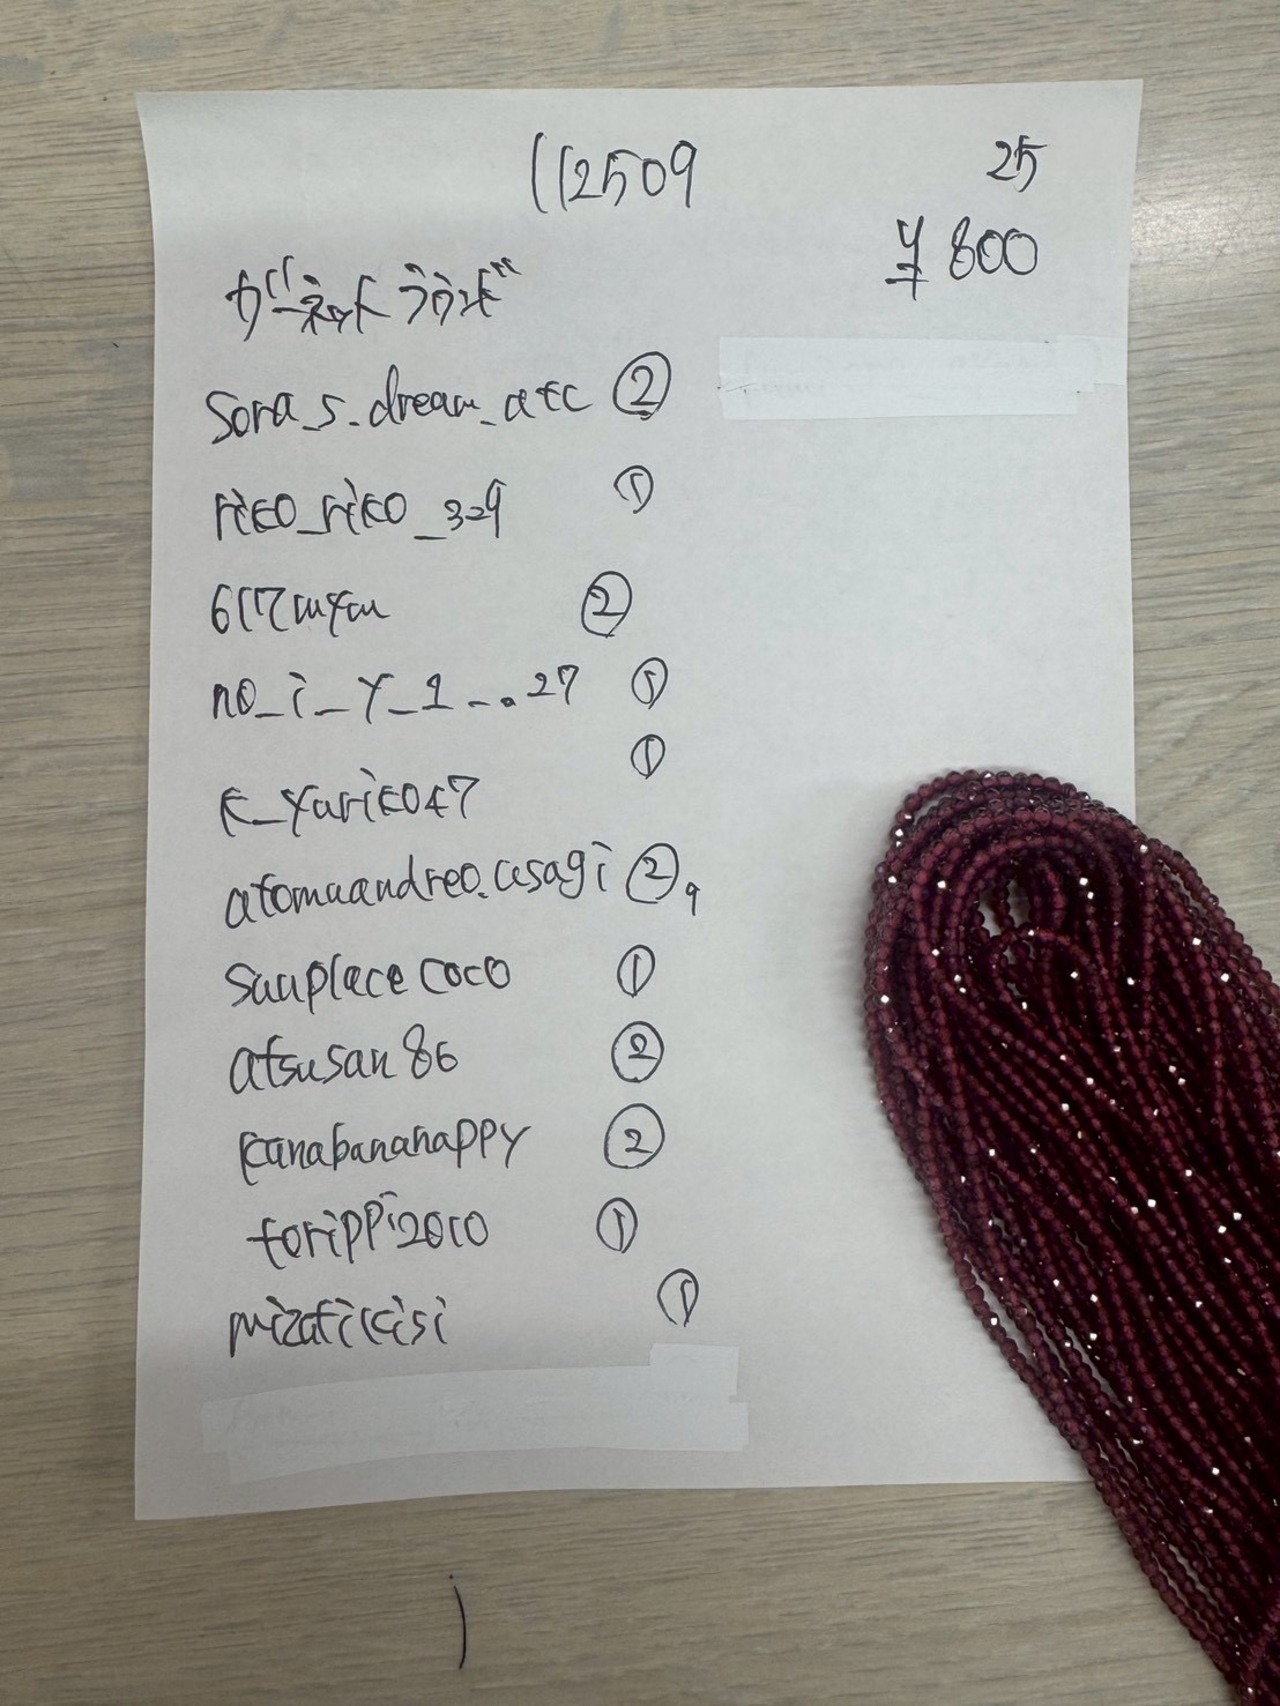 112509
25
¥800
ガーネットラウンド
Sora_s_dream_atc ②
riko_riko_329 ①
617mym ②
no_i_y_1__.27 ①
k_yuriko47 ①
atomuandreo.usagi ②
sunplacecoco ①
atsusan86 ②
kanabananappy ②
torippi2010 ①
mizutikisi ①